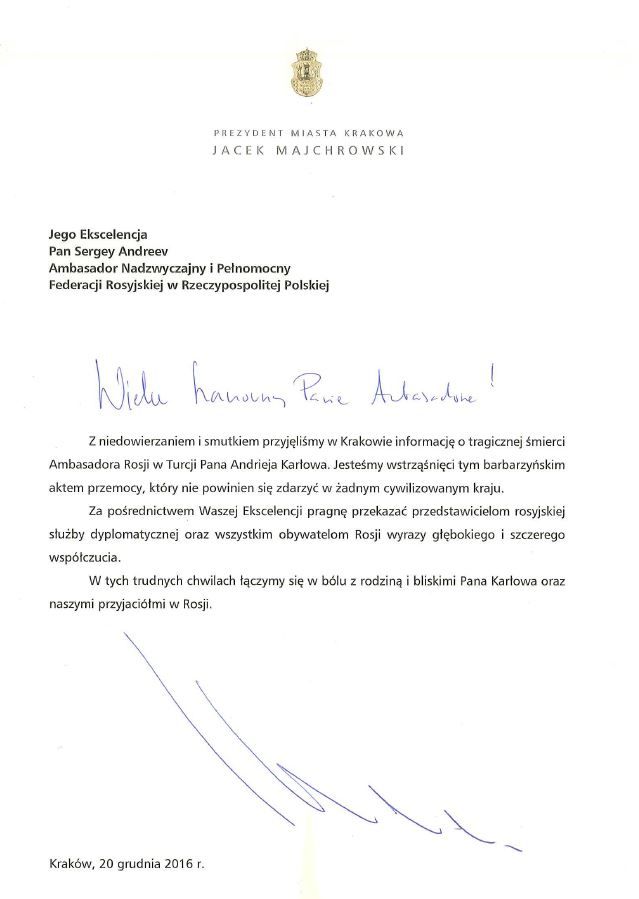 PREZYDENT MIASTA KRAKOWA
JACEK MAJCHROWSKI
Jego Ekscelencja
Pan Sergey Andreev
Ambasador Nadzwyczajny i Pełnomocny
Federacji Rosyjskiej w Rzeczypospolitej Polskiej
Wielce Szanowny Panie Ambasadorze!
Z niedowierzaniem i smutkiem przyjęliśmy w Krakowie informację o tragicznej śmierci
Ambasadora Rosji w Turcji Pana Andrieja Karłowa. Jesteśmy wstrząśnięci tym barbarzyńskim
aktem przemocy, który nie powinien się zdarzyć w żadnym cywilizowanym kraju.
Za pośrednictwem Waszej Ekscelencji pragnę przekazać przedstawicielom rosyjskiej
służby dyplomatycznej oraz wszystkim obywatelom Rosji wyrazy głębokiego i szczerego
współczucia.
W tych trudnych chwilach łączymy się w bólu z rodziną i bliskimi Pana Karłowa oraz
naszymi przyjaciółmi w Rosji.
Kraków, 20 grudnia 2016 r.